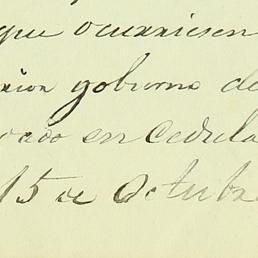 que ocurriesen
gobierno de
en Cedula
15 de Octubre